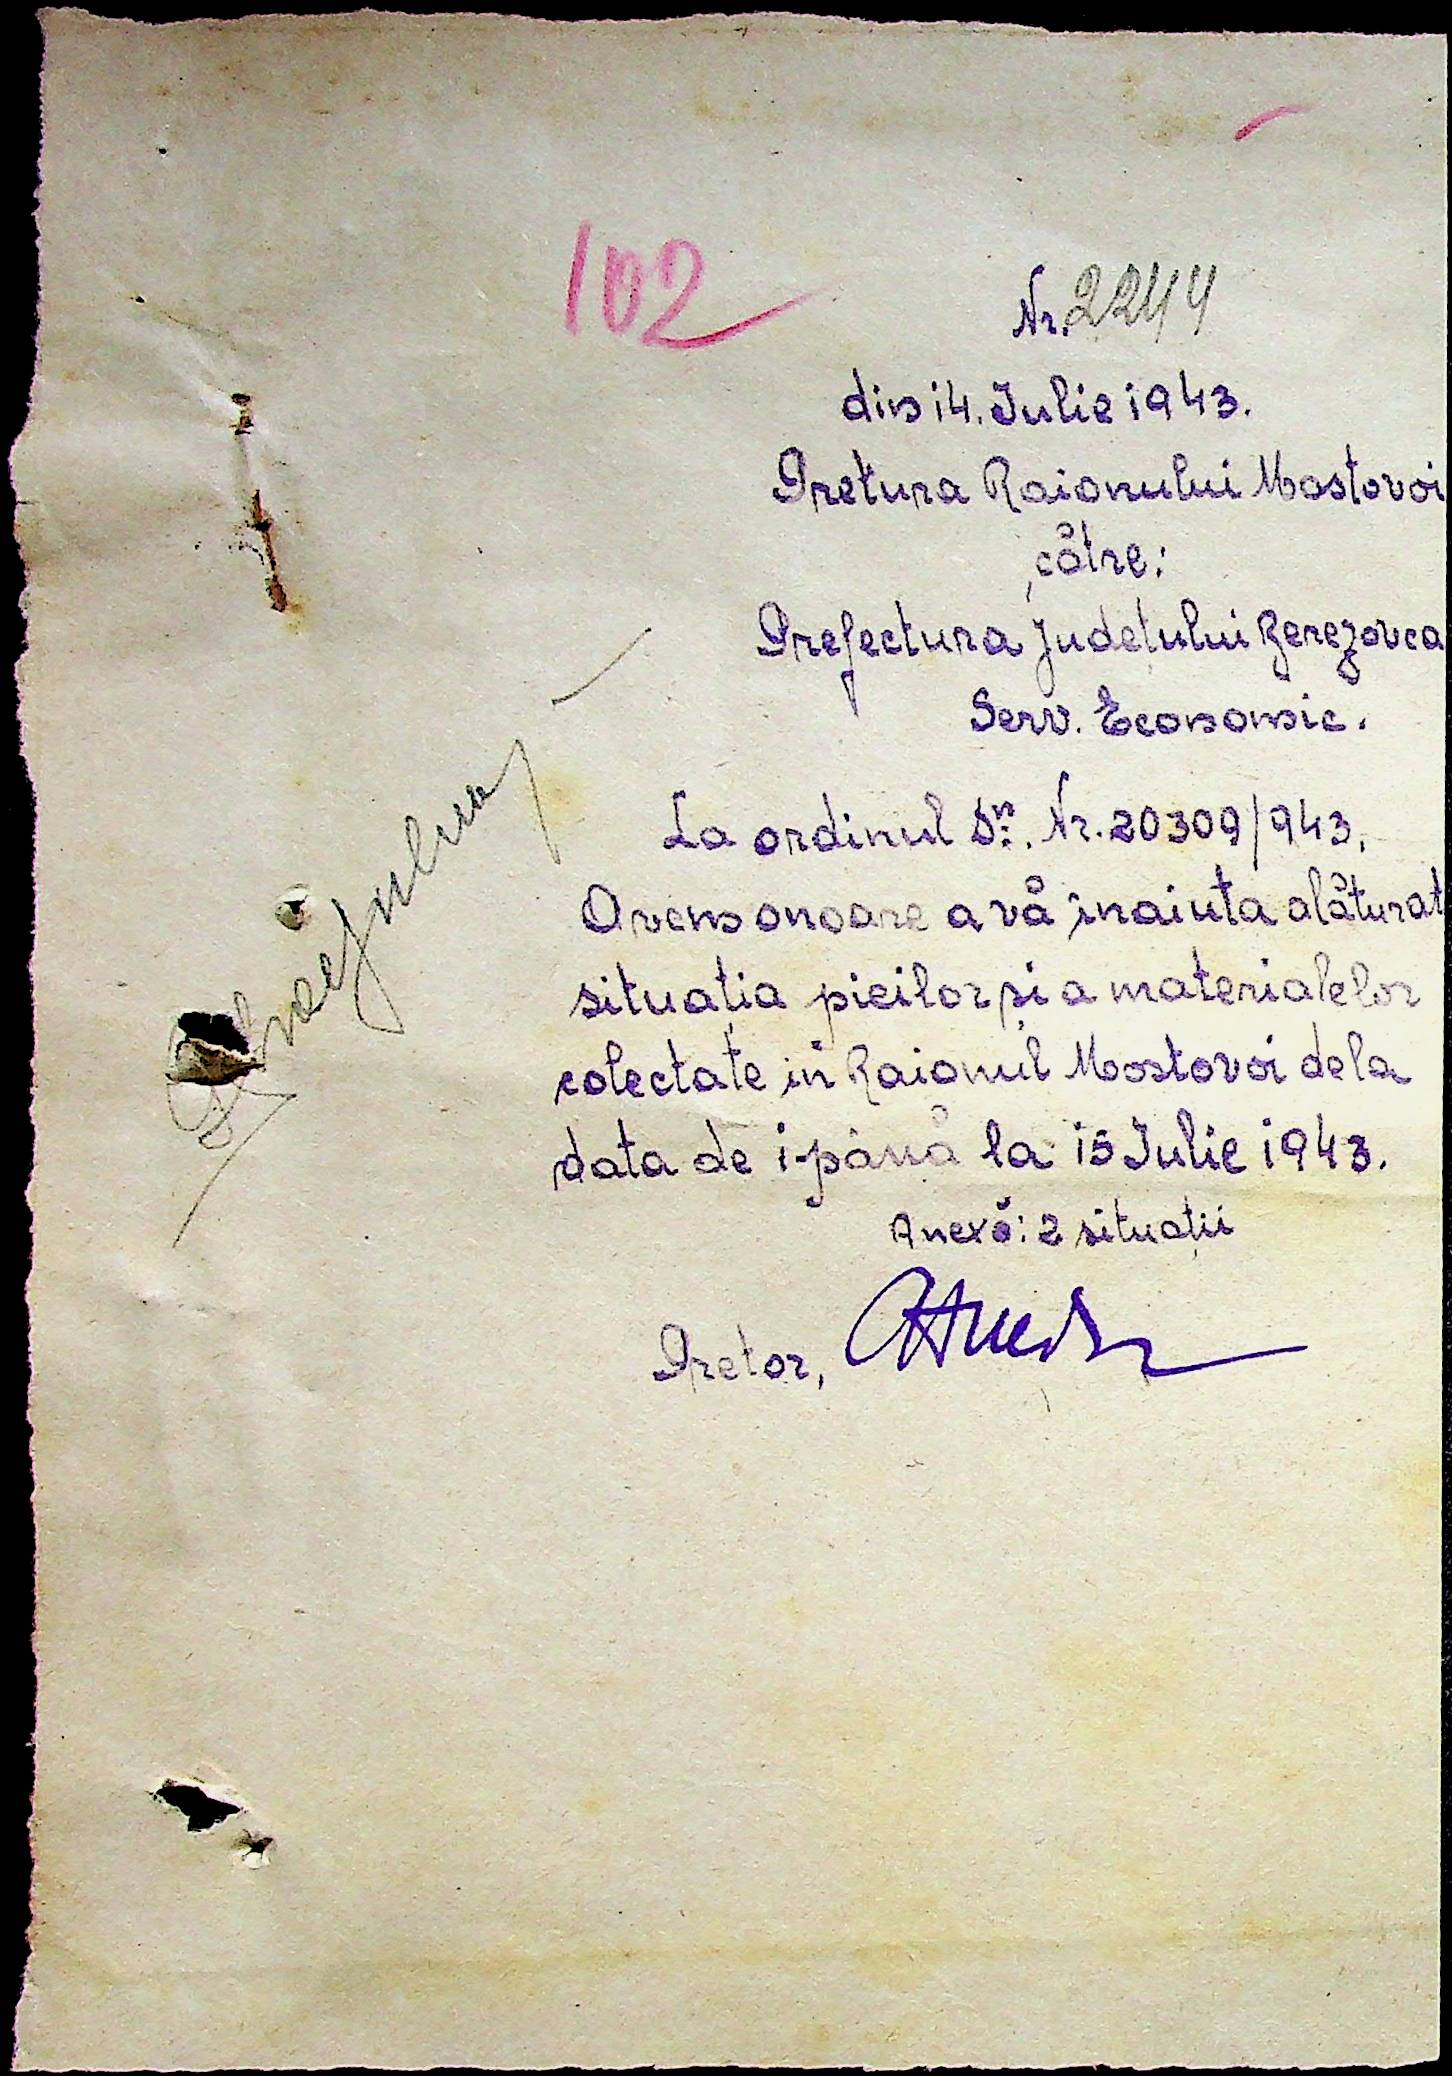 102
Nr. 2244
din 14. Iulie 1943.
Pretura Raionului Mostovoi
către:
Prefectura Județului Berezovca
Serv. Economic.
La ordinul Dv. Nr. 20309/943.
Avem onoare a vă înainta alăturat
situația pieilor și a materialelor
colectate în Raionul Mostovoi dela
data de 1-până la 15 Iulie 1943.
Anexă: 2 situații
Pretor,